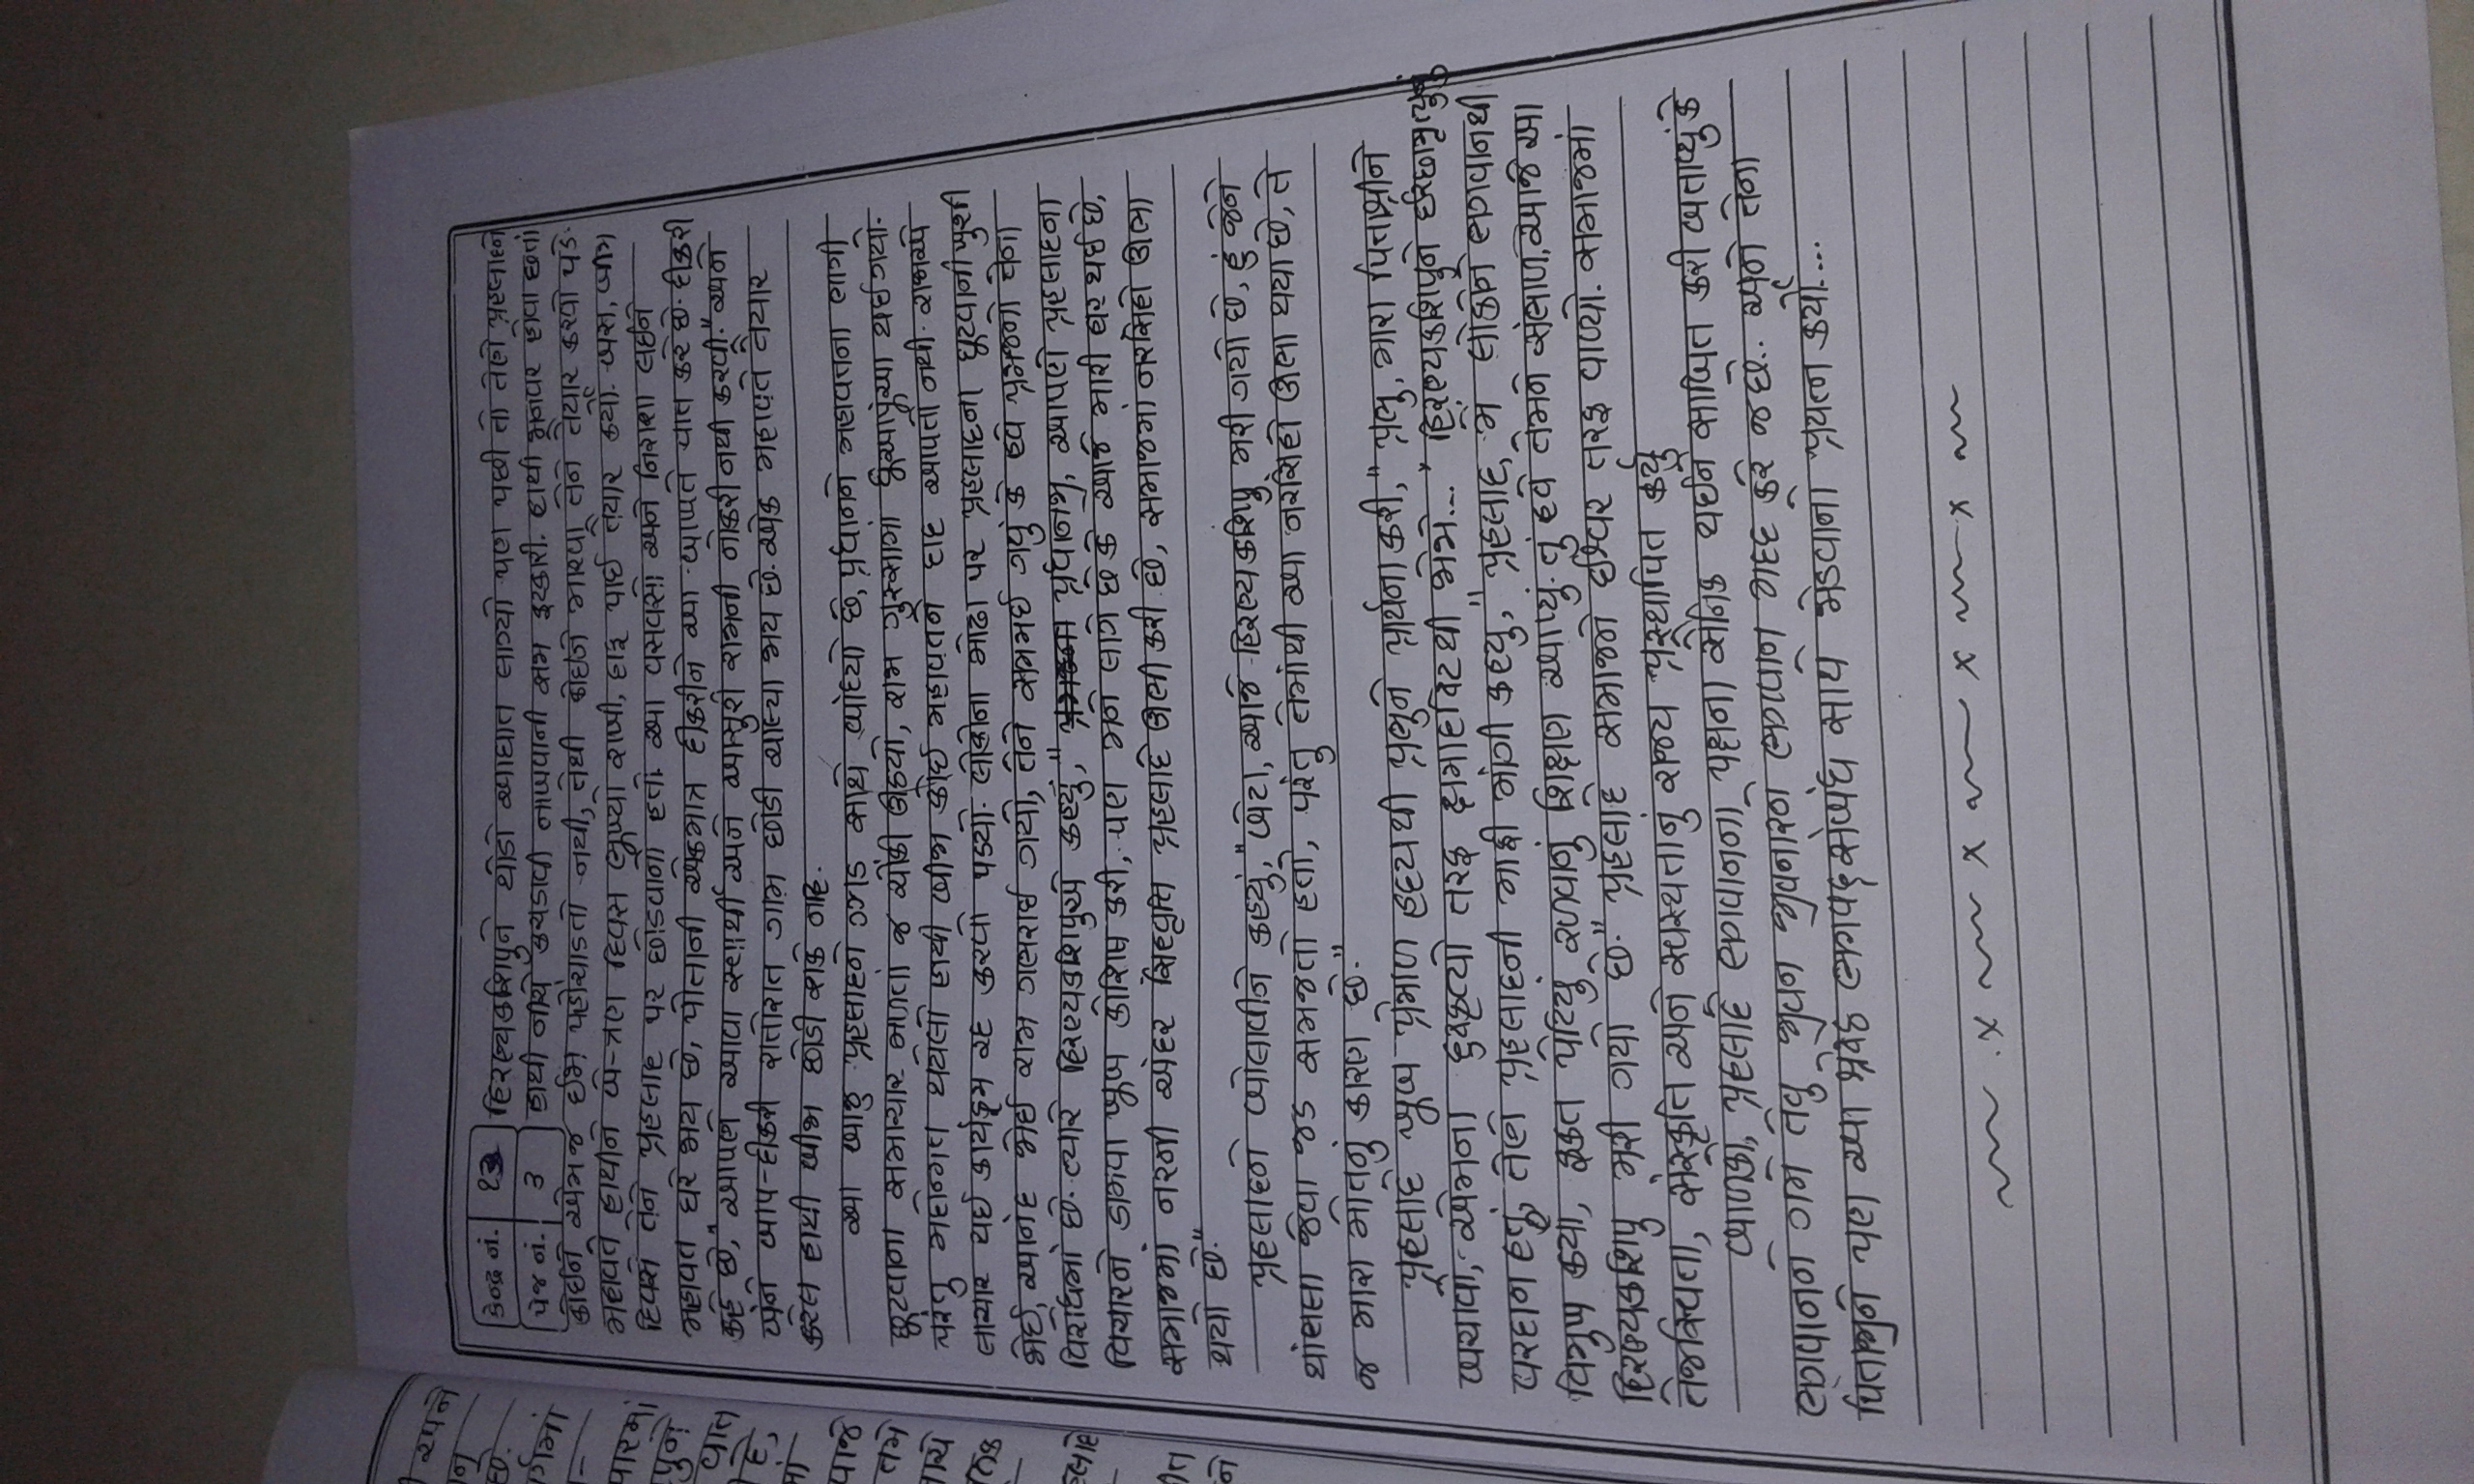 કેન્દ્ર નં. ૧૩ હિરણ્યકશિપુને થોડો આઘાત લાગ્યો પણ પછી તો તેણે પ્રહલાદને
પેજ નં. ૩ હાથી નીચે કચડાવી નાખવાની સજા ફટકારી. હાથી હોવા છતાં
કોઈને એમ જ ઈજા પહોંચાડતો નથી, તેથી કોઈને મારવા તેને તૈયાર કરવો પડે.
મહાવતે હાથીને બે-ત્રણ દિવસ ભૂખ્યો રાખી, દારૂ પાઈ તૈયાર કર્યો. બસ, બીજા
દિવસે તેને પ્રહલાદ પર છોડવાનો હતો. આ વસવસો અને નિરાશા લઈને
મહાવત ઘરે જાય છે, પોતાની એકમાત્ર દીકરીને આ બાબતે વાત કરે છે. દીકરી
કહે છે, "આપણે આવા સ્વાર્થી અને આસુરી રાજાની નોકરી નથી કરવી." અને
બંને બાપ-દીકરી રાતોરાત ગામ છોડી ચાલ્યા જાય છે. એક મહાવતે તૈયાર
કરેલ હાથી બીજા છોડી શકે નહિ.
આ બાજુ પ્રહલાદને ઝાડ સાથે બાંધ્યો છે, પ્રધાનને મહાવતના ભાગી
છૂટવાના સમાચાર મળતાં જ ચોંકી ઊઠ્યો, રાજા ગુસ્સામાં ધૂંઆપૂંઆ થઈ ગયો.
પરંતુ મદોન્મત્ત થયેલો હાથી બીજા કોઈ મહાવતને દાદ આપતો નથી. રાજાએ
લાચાર થઈ કાર્યક્રમ રદ કરવો પડ્યો. લોકોના મોઢા પર પ્રહલાદના છૂટવાની ખુશી
જોઈ, આનંદ જોઈ રાજા ગભરાઈ ગયો, તેને સમજાઈ ગયું કે હવે પ્રજાજનો તેના
વિરોધમાં છે. ત્યારે હિરણ્યકશિપુએ કહ્યું, " પ્રધાનજી, આપણે પ્રહલાદના
વિચારને ડામવા ખૂબ કોશિષ કરી, પણ મને લાગે છે કે આજે મારી હાર થઈ છે,
સમાજમાં નરની અંદર સિંહવૃત્તિ પ્રહલાદે ઊભી કરી છે, સમાજમાં નરસિંહો ઊભા
થયો છે."
પ્રહલાદને બોલાવીને કહ્યું, "બેટા, આજે હિરણ્યકશિપુ મરી ગયો છે, હું જેને
થાંભલા જેવા જડ સમજતો હતો, પરંતુ તેમાંથી આ નરસિંહો ઊભા થયા છે, તે
જ મારા મોતનું કારણ છે."
પ્રહલાદે ખૂબ પ્રેમાળ હૃદયથી પ્રભુને પ્રાર્થના કરી, "પ્રભુ, મારા પિતાશ્રીને
બચાવો, એમના દુષ્કૃત્યો તરફ ક્ષમાદ્રષ્ટિથી જોજો..." હિરણ્યકશિપુને ઈચ્છામૃત્યુનું
વરદાન હતું, તેણે પ્રહલાદની માફી માંગી કહ્યુ, "પ્રહલાદ, મેં લોકોને ભગવાનથી
વિમુખ કર્યા, ફક્ત પેટિયું રળવાનું શિક્ષણ આપ્યું. તું હવે તેમને સંભાળ, આજે આ
હિરણ્યકશિપુ મરી ગયો છે." પ્રહલાદે સમાજને ઈશ્વર તરફ વાળ્યો. સમાજમાં
તેજસ્વિતા, સંસ્કૃતિ અને સ્વસ્થતાનું રાજ્ય પ્રસ્થાપિત કર્યું
બાળકો, પ્રહલાદે ભગવાનના પક્ષના સૈનિક થઈને સાબિત કરી બતાવ્યું કે
ભગવાનને ગમે તેવુ જીવન જીવનારને ભગવાન મદદ કરે જ છે.. અને તેના
પિતાજીને પણ આ ભગવદ્ સંબંધ સાથે જોડવાનો પ્રયત્ન કર્યો....